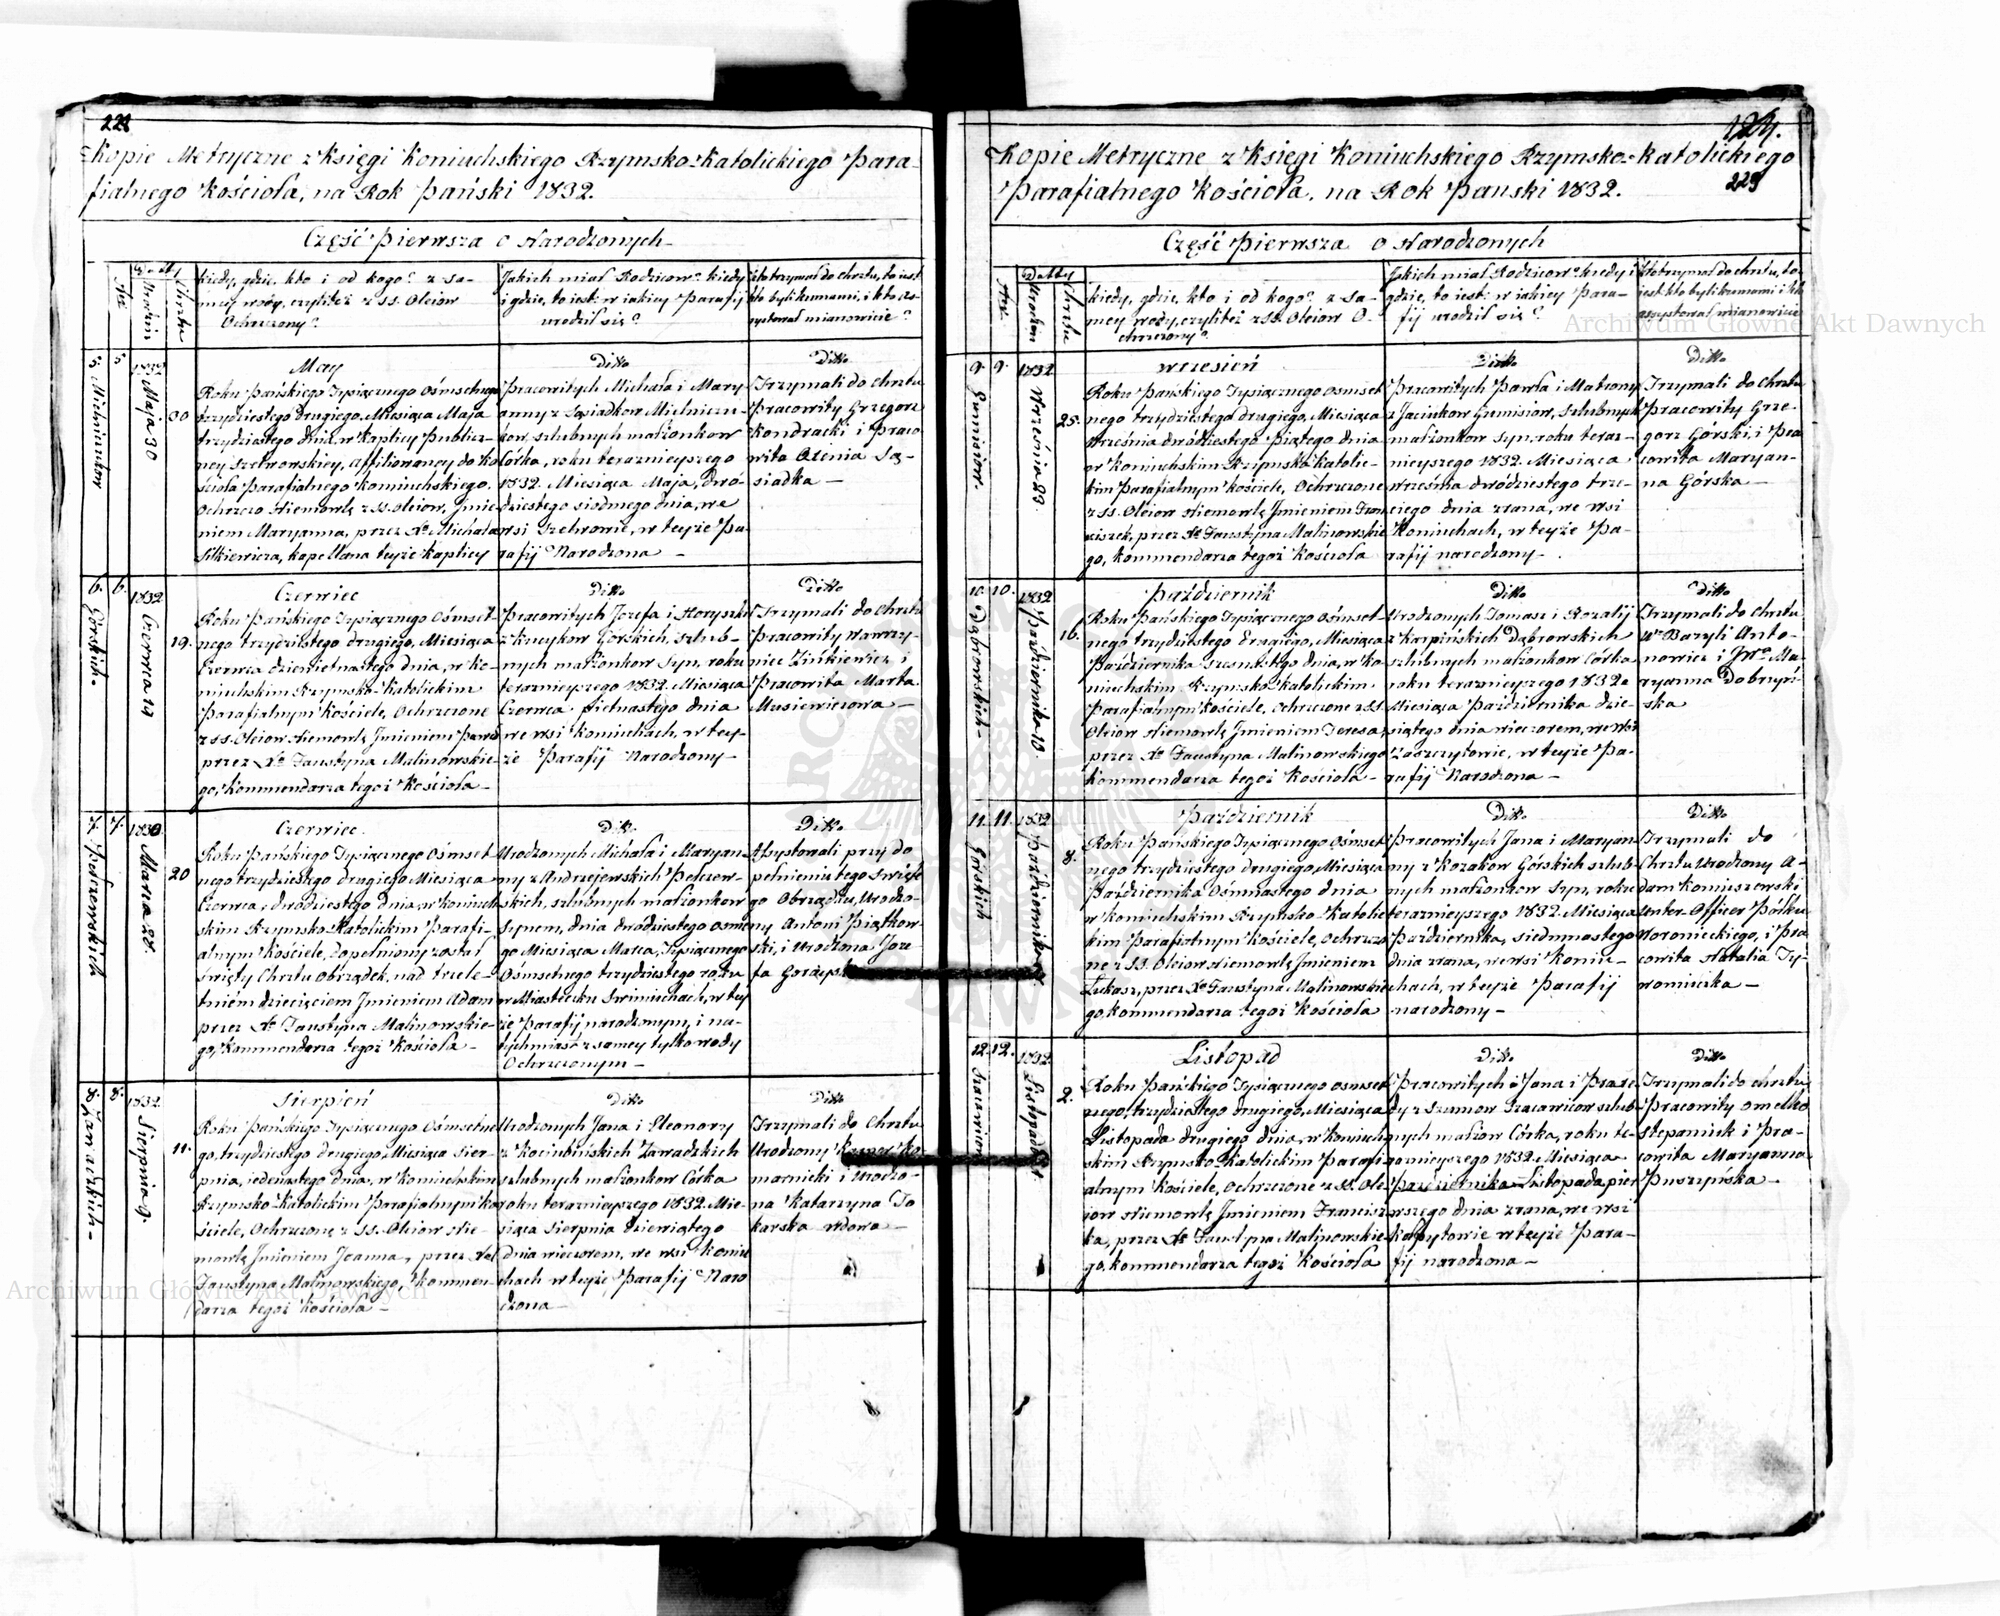 228
Kopie Metryczne z Księgi Koniuchskiego Rzymsko-Katolickiego Para-
fialnego Kościoła, na Rok Pański 1832.
Część Pierwsza o Narodzonych
Daty
Nro
Urodzin
Chrztu
kiedy, gdzie, kto i od kogo? z sa-
mey wody, czyliteż z SS. Oleiow
Ochrzczony?
Jakich miał Rodzicow? kiedy
i gdzie, to iest: w iakiey Parafij
urodził się?
kto trzymał do chrztu, to iest
kto byli kumami, i kto as-
systował mianowicie?
5. 5.
Mielniczukow
1832 Maja 30
30
May
Roku Pańskiego Tysiącznego Ośmsetnego
trzydziestego drugiego, Miesiąca Maja
trzydziestego dnia, w Kaplicy Publicz-
ney Szelwowskiey, affiliowaney do Ko-
ścioła Parafialnego Koniuchskiego,
Ochrzczo Niemowlę z SS. Oleiow, Jmie-
niem Maryanna, przez Xa Michała
Silkiewicza, kapellana teyże kaplicy
Ditto
Pracowitych Michała i Mary-
anny z Sąsiadkow Mielniczu-
kow, szlubnych małżonkow
Córka, roku terazniejszego
1832. Miesiąca Maja, dwó-
dziestego siódmego dnia, we
wsi Szelwowie, w teyże Pa-
rafij Narodzona —
Ditto
Trzymali do Chrztu
Pracowity Grzegorz
Kondracki i Praco-
wita Oxenia Są-
siadka —
6. 6.
Górskich.
1832 Czerwca 19
19.
Czerwiec
Roku Pańskiego Tysiącznego Ośmset-
nego trzydziestego drugiego, Miesiąca
Czerwca dziewiętnastego dnia, w Ko-
niuchskim Rzymsko-Katolickim
Parafialnym Kościele, Ochrzczone
z SS. Oleiow Niemowlę Jmieniem Paweł
przez Xa Faustyna Malinowskie-
go, Kommendarza tegoż Kościoła —
Ditto
Pracowitych Jozefa i Horyszki
z Kucykow Górskich, szlub-
nych małżonkow Syn, roku
terazniejszego 1832. Miesiąca
Czerwca piętnastego dnia
we wsi Koniuchach, w tey-
że Parafij Narodzony —
Ditto
Trzymali do Chrztu
Pracowity Wawrzy-
niec Zińkiewicz i
Pracowita Marta
Musiewiczowa —
7. 7.
Pełczewskich
1830. Marca 28.
20
Czerwiec.
Roku Pańskiego Tysiącznego Ośmset-
nego trzydziestego drugiego Miesiąca
Czerwca, dwódziestego dnia, w Koniuch-
skim Rzymsko-Katolickim Parafi-
alnym Kościele, dopełniony został
święty Chrztu Obrządek, nad trzele-
tniém dziecięciem Jmieniem Adam
przez Xa Faustyna Malinowskie-
go, Kommendarza tegoż Kościoła —
Ditto
Urodzonych Michała i Maryan-
ny z Andrzejewskich Pełczew-
skich, szlubnych małżonkow
Synem, dnia dwódziestego osme-
go Miesiąca Marca, Tysiącznego
Osmsetnego trzydziestego roku
w Miasteczku Swiniuchach, w tey-
że Parafij narodzonym, i na-
tychmiast z samey tylko wody
Ochrzczonym —
Ditto
Assystowali przy do
pełnieniu tego Święte
go Obrządku, Urodzo-
ny Antoni Piątkow-
ski, i Urodzona Joze
fa
8. 8.
Zawadzkich —
1832. Sierpnia 9.
11.
Sierpień
Roku Pańskiego Tysiącznego Ośmsetne-
go, trzydziestego drugiego, Miesiąca Sier-
pnia, iedenastego dnia, w Koniuchskim
Rzymsko-Katolickim Parafialnym Ko-
ściele, Ochrzczone z SS. Oleiow Nie-
mowlę Jmieniem Joanna, przez Xa
Faustyna Malinowskiego, Kommen-
darza tegoż Kościoła —
Ditto
Urodzonych Jana i Eleonory
z Kociubińskich Zawadzkich
szlubnych małżonkow Córka
roku terazniejszego 1832. Mie-
siąca Sierpnia dziewiątego
dnia wieczorem, we wsi Koniu
chach w teyże Parafij Naro
dzona —
Ditto
Trzymali do Chrztu
Urodzony Kasper Ko-
marnicki i Urodzo-
na Katarzyna To
karska wdowa —
124.
229
Kopie Metryczne z Księgi Koniuchskiego Rzymsko-Katolickiego
Parafialnego Kościoła, na Rok Pański 1832.
Część Pierwsza o Narodzonych
Daty
Nro
Urodzin
Chrztu
kiedy, gdzie, kto i od kogo? z sa-
mey wody, czyliteż z SS. Oleiow O-
chrzczony?
Jakich miał Rodzicow? kiedy i
gdzie, to iest: w iakiey Para-
fij urodził się?
kto trzymał do chrztu, to
iest kto byli kumami i kto
assystował mianowicie
9. 9.
1832 Września 23
25.
wrzesień
Roku Pańskiego Tysiącznego Osmset
nego trzydziestego drugiego, Miesiąca
Września dwódziestego piątego dnia
w Koniuchskim Rzymsko Katolic-
kim Parafialnym Kościele, Ochrzczone
z SS. Oleiow Niemowlę Jmieniem Fran-
ciszek, przez Xa Faustyna Malinowskie
go, Kommendarza tegoż Kościoła
Ditto
Pracowitych Pawła i Matrony
z Jaciukow Guminiow, szlubnych
małżonkow syn, roku teraz-
nieyszego 1832. Miesiąca
Września dwódziestego trze-
ciego dnia zrana, we wsi
Koniuchach, w teyże Pa-
rafij narodzony —
Ditto
Trzymali do Chrztu
Pracowity Grze-
gorz Górski, i Pra
cowita Maryan-
na Górska —
10. 10.
Dąbrowskich —
1832 Października 10.
16.
Październik
Roku Pańskiego Tysiącznego Ośmset-
nego trzydziestego drugiego, Miesiąca
Października szesnastego dnia, w Ko-
niuchskim Rzymsko-Katolickim
Parafialnym Kościele, Ochrzczone z SS.
Oleiow Niemowlę Jmieniem Teresa,
przez Xa Faustyna Malinowskiego
Kommendarza tegoż Kościoła —
Ditto
Urodzonych Tomasz i Rozalij
z Karpińskich Dąbrowskich
szlubnych małżonkow Córka
roku terazniejszego 1832.
Miesiąca Października dzie-
siątego dnia wieczorem, we wsi
Zaszczytowie, w teyże Pa-
rafij Narodzona —
Ditto
Trzymali do Chrztu
Wny Bazyli Anto-
nowicz i Wna Ma-
ryanna Dobrzyń-
ska
11. 11.
Górskich
1832 Października
8.
Październik
Roku Pańskiego Tysiącznego Ośmset
nego trzydziestego drugiego, Miesiąca
Października Ośmnastego dnia
w Koniuchskim Rzymsko-Katolic-
kim Parafialnym Kościele, Ochrzczo
ne z SS. Oleiow Niemowlę Jmieniem
Łukasz, przez Xa Faustyna Malinowskie
go, Kommendarza tegoż Kościoła
Ditto
Pracowitych Jana i Maryan
ny z Kozakow Górskich szlub-
nych małżonkow Syn, roku
terazniejszego 1832. Miesiąca
Października, siedmnastego
dnia zrana, we wsi Koniu-
chach, w teyże Parafij
narodzony —
Ditto
Trzymali do
Chrztu Urodzony A-
dam Komiszewski
Unter-Officer Pólku
Woronieckiego, i Pra
cowita Natalia Ty-
womiczka —
12. 12.
1832 Listopada 1
2.
Listopad
Roku Pańskiego Tysiącznego osmset
nego, trzydziestego drugiego, Miesiąca
Listopada drugiego dnia, w Koniuch-
skim Rzymsko-Katolickim Parafi-
alnym Kościele, Ochrzczone z SS. Ole-
iow Niemowlę Jmieniem Francisz
ka, przez Xa Faustyna Malinowskie
go, Kommendarza tegoż Kościoła
Ditto
Pracowitych Jana i Praxe
dy z Szumow szlub-
nych małżon Córka, roku te-
raznieyszego 1832. Miesiąca
Października Listopada pier
wszego dnia zrana, we wsi
Kopytowie w teyże Para-
fij narodzona —
Ditto
Trzymali do chrztu
Pracowity Omelko
Stepaniuk i Pra-
cowita Maryanna
Puszyńska —
Archiwum Główne Akt Dawnych
Archiwum Główne Akt Dawnych